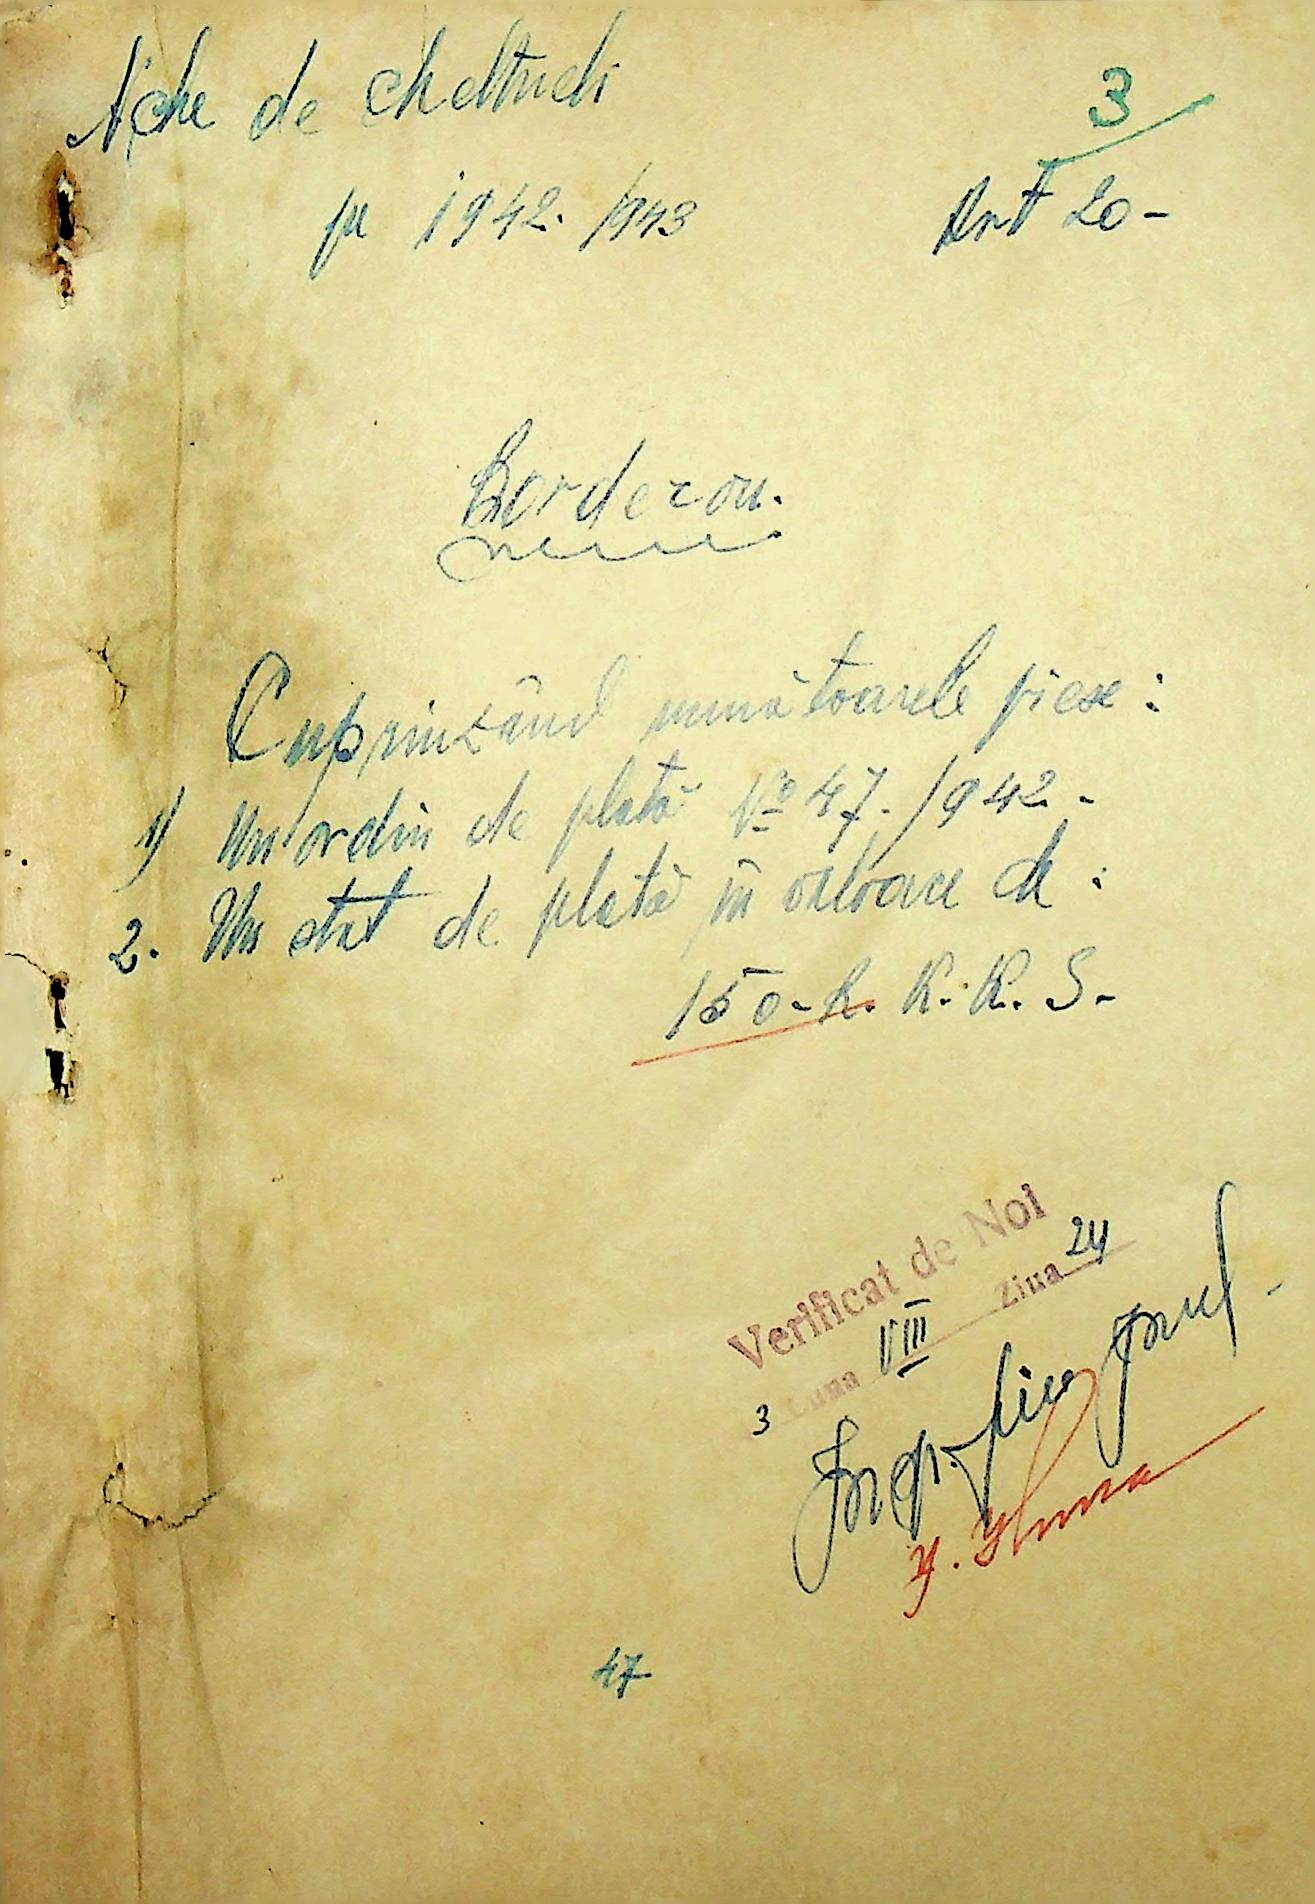 3
Acte de cheltueli
pe 1942.1943
Art 20-
Borderou.
Cuprinzând următoarele piese:
1) Un ordin de plată No 47./942.-
2. Un stat de plată în valoare de:
150-R. K. K. S-
Verificat de Noi
3 Luna VIII Ziua 24
47